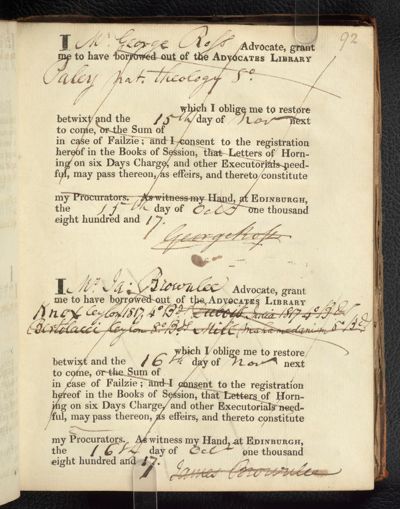 92
I Mr. George Ross Advocate, grant
me to have borrowed out of the ADVOCATES LIBRARY
Paley nat. theology 8o
which I oblige me to restore
betwixt and the 15th day of Nov next
to come, or the Sum of
in case of Failzie; and I consent to the registration
hereof in the Books of Session, that Letters of Horn-
ing on six Days Charge, and other Executorials need-
ful, may pass thereon, as effeirs, and thereto constitute
my Procurators. As witness my Hand, at EDINBURGH,
the 15th day of Oct one thousand
eight hundred and 17.
George Ross
I Mr. Ja: Brownlee Advocate, grant
me to have borrowed out of the ADVOCATES LIBRARY
Knox Ceylon 1817 4o Bd India 1817 4o Bd
Bertolacci Ceylon 8o Bd Mill, Muhamedanism 8o Bd
which I oblige me to restore
betwixt and the 16th day of Nov next
to come, or the Sum of
in case of Failzie; and I consent to the registration
hereof in the Books of Session, that Letters of Horn-
ing on six Days Charge, and other Executorials need-
ful, may pass thereon, as effeirs, and thereto constitute
my Procurators. As witness my Hand, at EDINBURGH,
the 16th day of Oct one thousand
eight hundred and 17.
James Brownlee